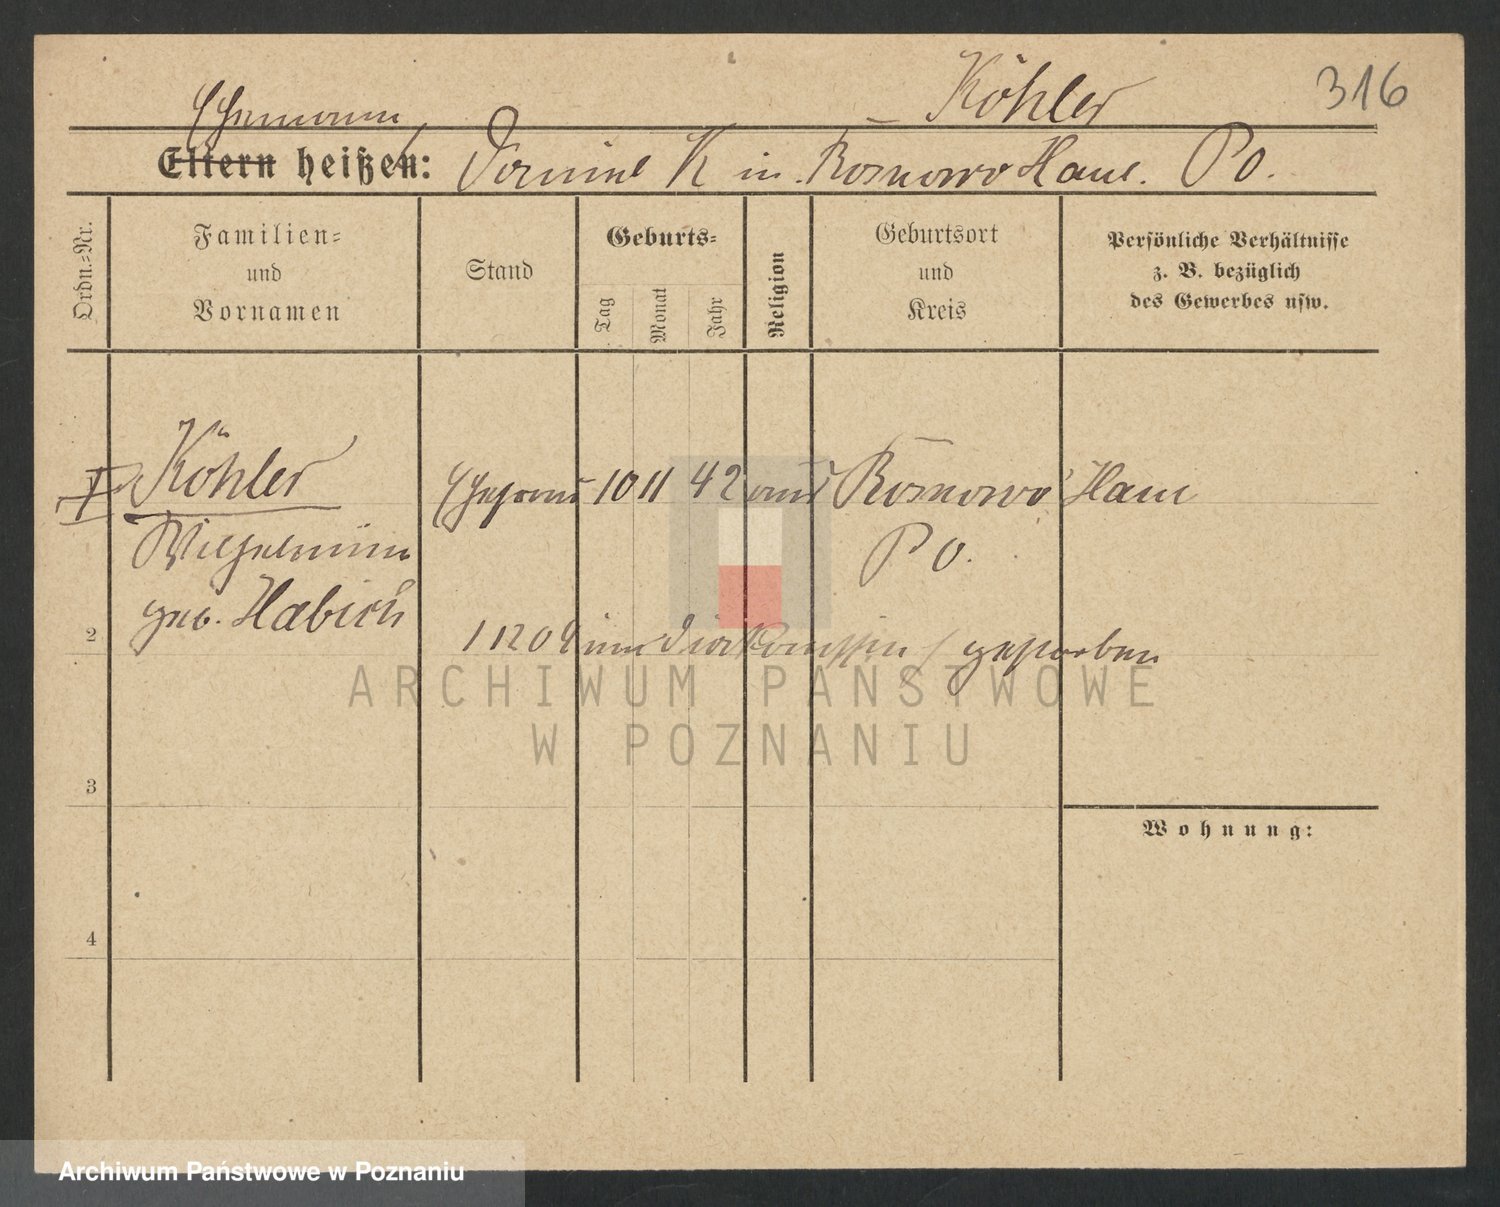 Köhler 316
Ehemann
Eltern heißen: Daniel K in Rosnowo Haul. Po.
Ordn.=Nr.
Familien=
und
Vornamen
Stand
Geburts=
Tag
Monat
Jahr
Religion
Geburtsort
und
Kreis
Persönliche Verhältnisse
z. B. bezüglich
des Gewerbes usw.
1 Köhler Ehefrau 10 11 42 aus Rosnowo Haul
Wilhelmine Po.
geb. Habich
2 1 12 09 im gestorben
3
Wohnung:
4
ARCHIWUM PAŃSTWOWE
W POZNANIU
Archiwum Państwowe w Poznaniu